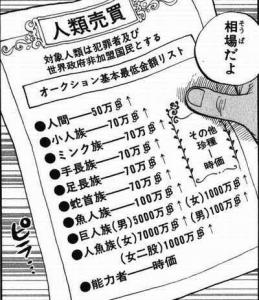 相場だよ
そうば
人類売買
対象人類は犯罪者及び
世界政府非加盟国民とする
オークション基本最低金額リスト
●人間——50万฿↑
●小人族——70万฿↑
●ミンク族——70万฿↑
●手長族——70万฿↑
●足長族——70万฿↑
●蛇首族——70万฿↑
●魚人族——100万฿↑
●巨人族(男)5000万฿↑(女)1000万฿↑
●人魚族(女)7000万฿↑(男)100万฿↑
(女二股)1000万฿↑
●能力者——時価
その他
珍種
時価
ピラ…